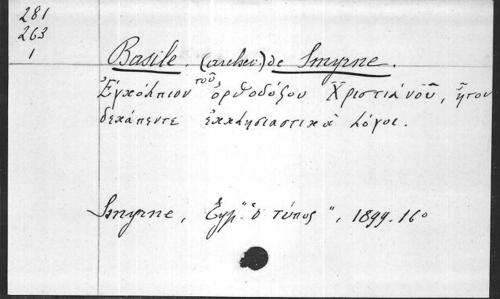 281
263
1
Basile. (archev.) de Smyrne.
Ἐγκόλπιον τοῦ ὀρθοδόξου Χριστιανοῦ, ἤτοι
δεκάπεντε ἐκκλησιαστικὰ λόγοι.
Smyrne, Ἐγμ. "ὁ τύπος", 1899. 16°